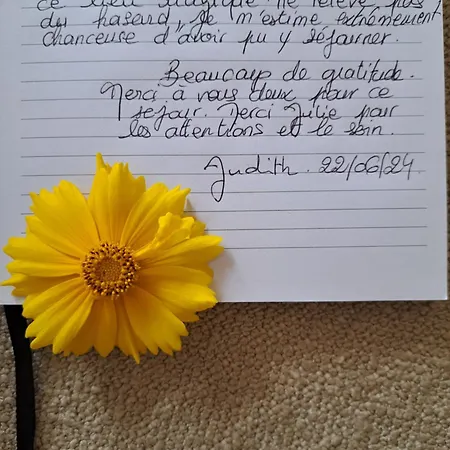 ce lieu magique ne relève pas
du hasard, je m'estime extrêmement
chanceuse d'avoir pu y séjourner.
Beaucoup de gratitude.
Merci à vous deux pour ce
séjour. Merci Julie pour
les attentions et le soin.
Judith. 22/06/24.